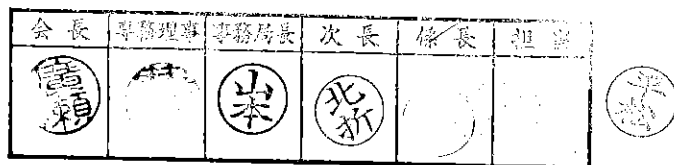 会長 専務理事 事務局長 次長 係長 担当
廣瀬 山本 北折